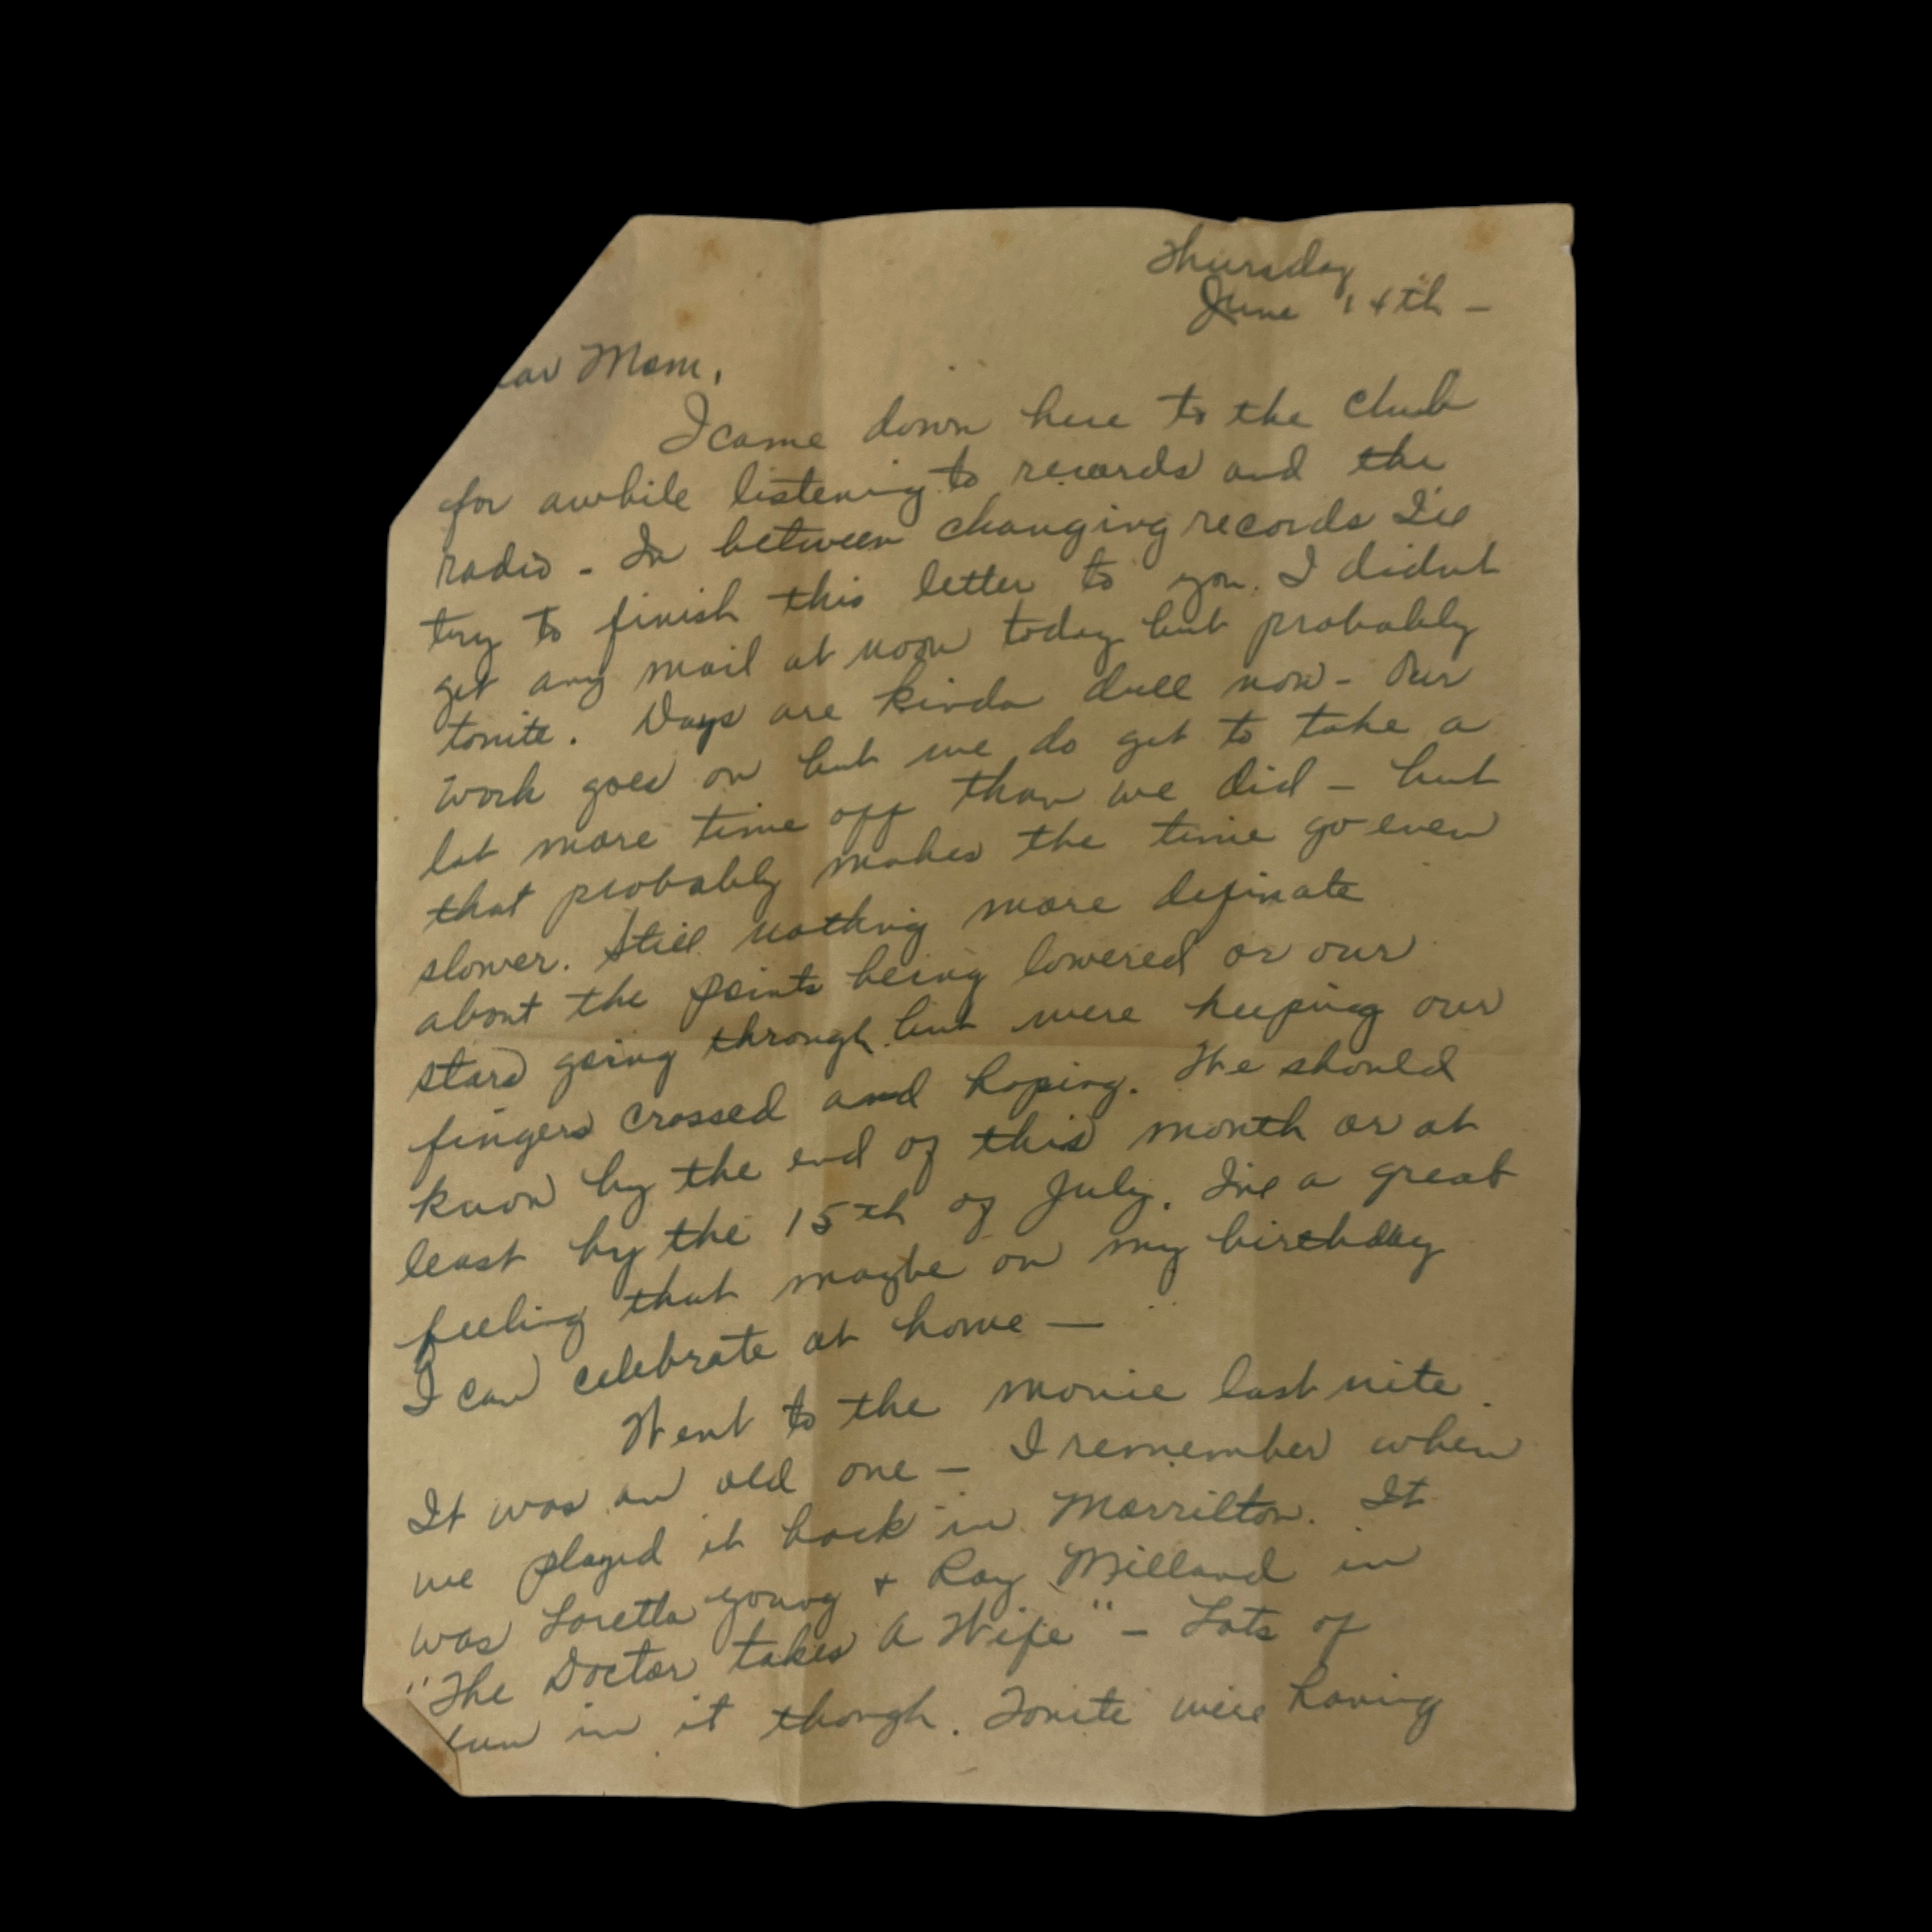 Thursday
June 14th -
ear Mom,
I came down here to the club
for awhile listening to records and the
radio - In between changing records I'll
try to finish this letter to you. I didnt
get any mail at noon today but probably
tonite. Days are kinda dull now - Our
work goes on but we do get to take a
lot more time off than we did - but
that probably makes the time go even
slower. Still nothing more definate
about the points being lowered or our
stars going through but were keeping our
fingers crossed and hoping. We should
know by the end of this month or at
least by the 15th of July. I've a great
feeling that maybe on my birthday
I can celebrate at home —
Went to the movie last nite.
It was an old one - I remember when
we played it back in Morrilton. It
was Loretta Young + Ray Milland in
"The Doctor takes A Wife" - Lots of
fun in it though. Tonite were having